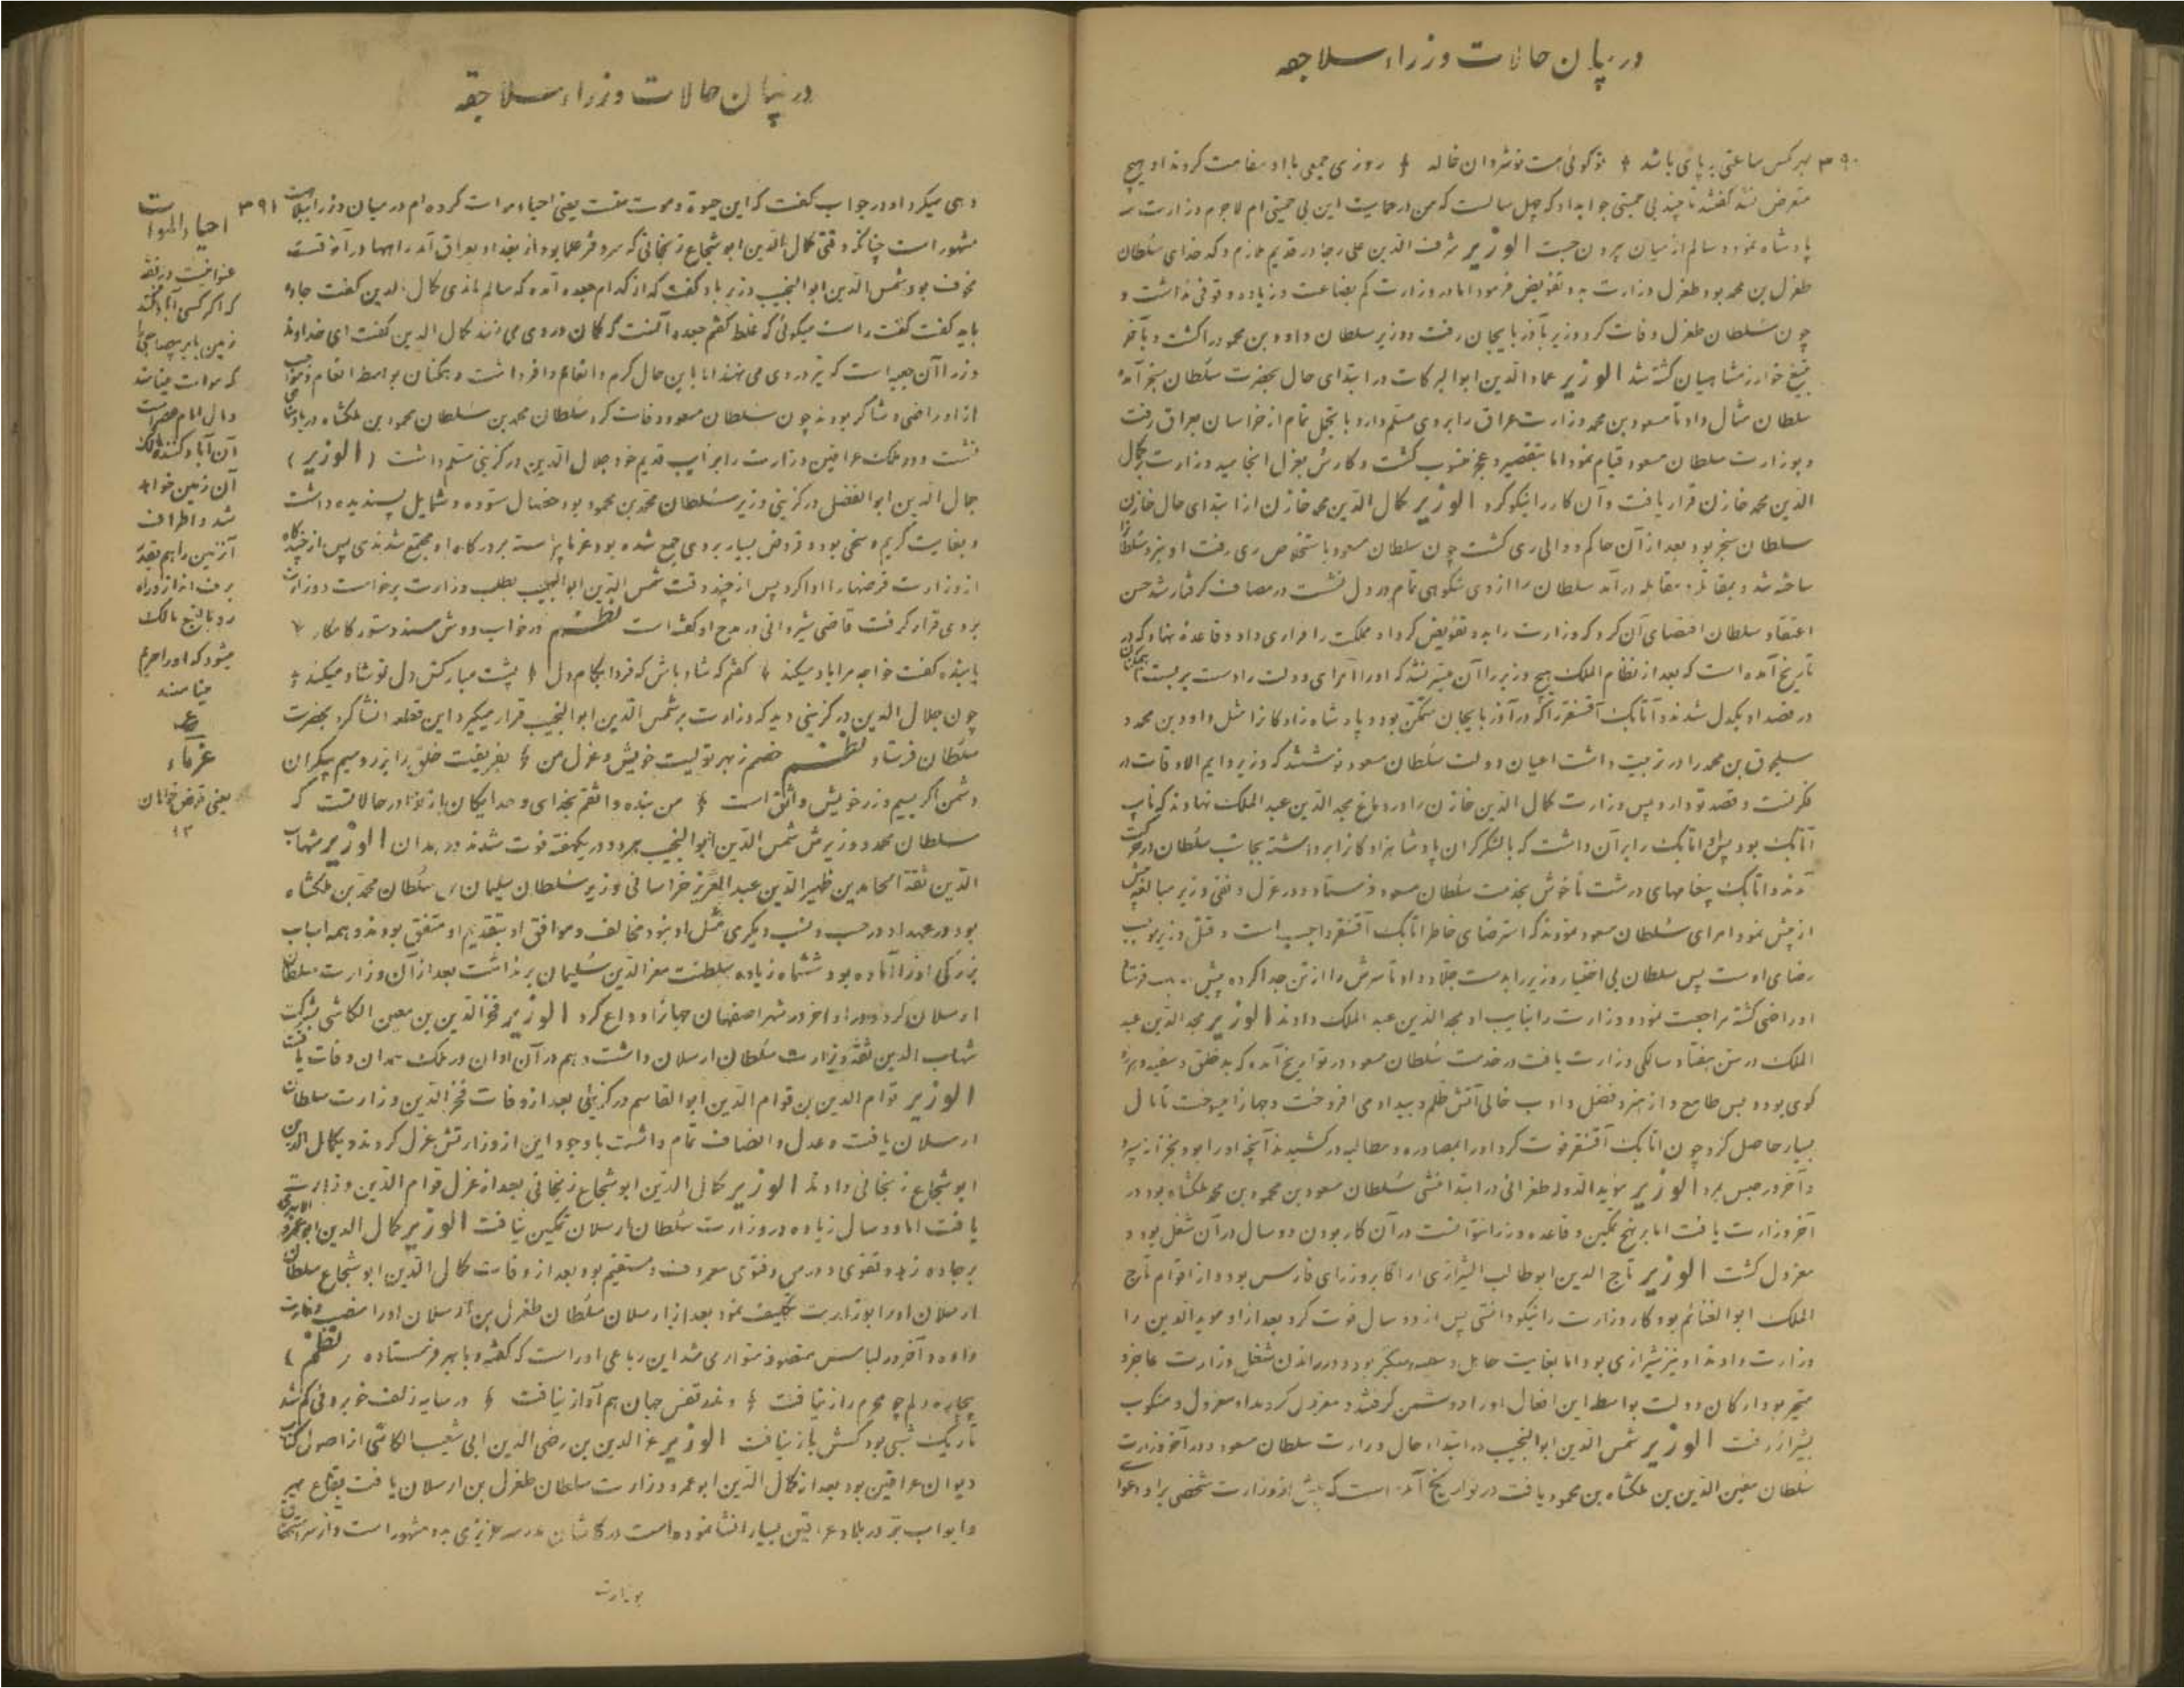 در بیان حالات وزراء سلاجقه
۳۹۰ بهر کس ساعتی بر پای باشد تو گوئی هست نوشروان خاله روزی جمعی با او سفاهت کردند او هیچ
متعرض نشد گفتند تا چند بی حمیتی جواب داد که چهل سالست که من در حمایت این بی حمیتی ام لاجرم وزارت سه
پادشاه نمود و سالم از میان بیرون جست الوزیر شرف الدین علی رجا در قدیم ملازم وکدخدای سلطان
طغرل بن محمد بود طغرل وزارت بدو تفویض فرمود اما در وزارت کم بضاعت و زیاده وقوفی نداشت و
چون سلطان طغرل وفات کرد وزیر بآذربایجان رفت و وزیر سلطان داود بن محمود را گشت و بآخر
بتیغ خوارزمشاهیان کشته شد الوزیر عماد الدین ابوالبرکات در ابتدای حال بحضرت سلطان سنجر آمد
سلطان مثال داد تا مسعود بن محمد وزارت عراق را بر وی مسلم دارد با تجمل تمام از خراسان بعراق رفت
و بوزارت سلطان مسعود قیام نمود اما بتقصیر و عجز منسوب گشت و کارش بعزل انجامید وزارت بر کمال
الدین محمد خازن قرار یافت و آن کار را نیکو کرد الوزیر کمال الدین محمد خازن از ابتدای حال خازن
سلطان سنجر بود بعد از آن حاکم و والی ری گشت چون سلطان مسعود باستخلاص ری رفت او نبرد سلطان را
ساخته شد و بمقاتله و مقابله در آمد سلطان را از وی شکوهی تمام در دل نشست در مصاف گرفتار شد حسن
اعتقاد سلطان اقتضای آن کرد که وزارت را بدو تفویض کرد او مملکت را قراری داد و قاعده نهاد که در
تاریخ آمده است که بعد از نظام الملک هیچ وزیر را آن میسر نشد که او را امرای دولت را دست بر بست همگنان
در قصد او یکدل شدند و اتابک آقسنقر را که در آذربایجان متمکن بود و پادشاه زادگان را مثل داود بن محمد و
سلجوق بن محمد را در تربیت داشت اعیان دولت سلطان مسعود نوشتند که وزیر دایم الاوقات در
فکر تست و قصد تو دارد پس وزارت کمال الدین خازن را در دماغ مجد الدین عبد الملک نهادند که نایب
اتابک بود پس او اتابک را بر آن داشت که بالشکر گران پادشاهزادگان را برداشته بجانب سلطان در حرکت
آمدند و اتابک پیغامهای درشت ناخوش بخدمت سلطان مسعود فرستاد و در عزل و نفی وزیر مبالغه بیش
از پیش نمود امرای سلطان مسعود نمودند که استرضای خاطر اتابک آقسنقر واجب است و قتل وزیر موجب
رضای اوست پس سلطان بی اختیار وزیر را بدست جلاد داد تا سرش را از تن جدا کرده پیش اتابک فرستاد
او راضی گشته مراجعت نمود و وزارت را بنایب او مجد الدین عبد الملک دادند الوزیر مجد الدین عبد
الملک در سن هفتاد سالگی وزارت یافت در خدمت سلطان مسعود در تواریخ آمده که بد خلق و سفیه و هرزه
گوی بود و بس طامع و از هنر و فضل و ادب خالی آتش ظلم و بیداد می افروخت و جهانرا میسوخت تا مال
بسیار حاصل کرد چون اتابک آقسنقر فوت کرد او را بمصادره و مطالبه در کشیدند آنچه او را بود بجز از سپرد
و آخر در حبس بمرد الوزیر مؤید الدوله طغرائی در ابتدا منشی سلطان مسعود بن محمود بن محمد ملکشاه بود در
آخر وزارت یافت اما بر نهج تمکین و قاعده وزرا نتوانست در آن کار بودن دو سال در آن شغل بود و
معزول گشت الوزیر تاج الدین ابوطالب الشیرازی از اکابر وزرای فارس بود و از اقوام تاج
الملک ابوالغنائم بود کار وزارت را نیکو دانستی پس از دو سال فوت کرد بعد از او موید الدین را
وزارت دادند او نیز شیرازی بود اما بغایت جاهل و متکبر بود و در راندن شغل وزارت عاجز و
متحیر بود ارکان دولت بواسطه این افعال او را دشمن گرفتند و معزول کردند او معزول و منکوب
بشیراز رفت الوزیر شمس الدین ابوالنجیب در ابتداء حال وزارت سلطان مسعود و در آخر وزارت
سلطان معین الدین بن ملکشاه بن محمود یافت در تواریخ آمده است که پیش از وزارت شخصی بر او دعوا
در بیان حالات وزراء سلاجقه
دهی میکرد او در جواب گفت که این حیوة و موت منست یعنی احیاء موات کرده ام در میان وزرا ببلاهت ۳۹۱
مشهور است چنانکه وقتی کمال الدین ابو شجاع زنجانی که سر دفتر علما بود از بغداد بعراق آمد راهها در آنوقت
مخوف بود شمس الدین ابوالنجیب وزیر باو گفت که از کدام جعبه آمده که سالم ماندی کمال الدین گفت جاده
باید گفت گفت راست میگوئی که غلط گفتم جعبه آنست که کمان در وی می زنند کمال الدین گفت ای خداوند
وزرا آن جعبه است که تیر در وی می نهند اما با این حال کرم و انعام وافر داشت و همگنان بواسطه انعام و مواهب
از او راضی و شاکر بودند چون سلطان مسعود وفات کرد سلطان محمد بن سلطان محمود بن ملکشاه در پادشاهی
نشست و در ملک عراقین وزارت را بر نایب قدیم خود جلال الدین درگزینی مسلم داشت (الوزیر)
جمال الدین ابوالفضل درگزینی وزیر سلطان محمد بن محمود بود خصال ستوده و شمایل پسندیده داشت
و بغایت کریم و سخی بود و قروض بسیار بر وی جمع شده بود غرما پیوسته بر درگاه او مجتمع شدندی پس از چندگاه
از وزارت قرضها را ادا کرد پس از چند وقت شمس الدین ابوالنجیب بطلب وزارت برخواست و وزارت
بر وی قرار گرفت قاضی شیروانی در مدح او گفته است نظم در خواب دوش مسند دستور کامکار
با بنده گفت خواجه مرا یاد میکند گفتم که شاد باش که فردا بکام دل پشت مبارکش دل تو شاد میکند
چون جلال الدین درگزینی دید که وزارت بر شمس الدین ابوالنجیب قرار میگیرد این قطعه انشا کرد بحضرت
سلطان فرستاد نظم خصم ز بهر تولیت خویش و عزل من بفریفت خلق را بزر و سیم بیکران
دشمن اگر بسیم و زر خویش واثق است من بنده واثقم بخدای و خدایگان باز او در حالا تست که
سلطان محمد و وزیرش شمس الدین ابوالنجیب هر دو در یکهفته فوت شدند در همدان الوزیر شهاب
الدین ثقة المجاهدین ظهیر الدین عبد العزیز خراسانی وزیر سلطان سلیمان بن سلطان محمد بن ملکشاه
بود در عهد او در حسب و نسب دیگری مثل او نبود مخالف و موافق او بتقدیم او متفق بودند و همه اسباب
بزرگی او را آماده بود ششماه زیاده سلطنت معز الدین سلیمان بر نداشت بعد از آن وزارت سلطان
ارسلان کرد و در اواخر در شهر اصفهان جهانرا وداع کرد الوزیر فخر الدین بن معین الکاشی بشرکت
شهاب الدین ثقه وزارت سلطان ارسلان داشت و هم در آن اوان در ملک همدان وفات یافت
الوزیر قوام الدین بن قوام الدین ابوالقاسم درگزینی بعد از وفات فخر الدین وزارت سلطان
ارسلان یافت و عدل و انصاف تمام داشت با وجود این از وزارتش عزل کردند و بکمال الدین
ابو شجاع زنجانی دادند الوزیر کمال الدین ابو شجاع زنجانی بعد از عزل قوام الدین وزارت
یافت اما دو سال زیاده در وزارت سلطان ارسلان تمکین نیافت الوزیر کمال الدین ابوعمرو الابهری
بر جاده زهد و تقوی و درس و فتوی معروف و مستقیم بود بعد از وفات کمال الدین ابو شجاع سلطان
ارسلان او را بوزارت تکلیف نمود بعد از ارسلان سلطان طغرل بن ارسلان او را منصب وزارت
داد و آخر در لباس تصوف متواری شد این رباعی او راست که گفته و بابهر فرستاده (نظم)
بیچاره دلم چو محرم راز نیافت وندر قفس جهان هم آواز نیافت در سایه زلف خوبروئی گم شد
تاریک شبی بود کسش باز نیافت الوزیر عز الدین بن رضی الدین ابی شعیب الکاشی از اصول کتاب
دیوان عراقین بود بعد از کمال الدین ابوعمرو وزارت سلطان طغرل بن ارسلان یافت بقاع خیر
و ابواب بر در بلاد عراقین بسیار انشا نموده است در کاشان مدرسه عزیزی بدو مشهور است و از سر استحقاق
بوزارت
احیاء الموات
عنوانیست در فقه
که اگر کسی آباد کند
زمین بایر بیصاحبی را
که موات مینامند
و مال امام عصر است
آن آباد کننده مالک
آن زمین خواهد
شد و اطراف
آنزمین را هم بقدر
برف انداز و راه
رو بالتبع مالک
میشود که او را حریم
مینامند
غرماء
یعنی قرض خواهان
۱۲